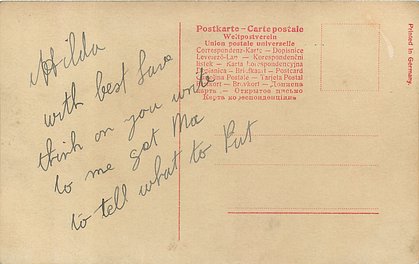 Hilda
with best love
think on you write
to me get Ma
to tell what to Put
Postkarte – Carte postale
Weltpostverein
Union postale universelle
Correspondenz-Karte – Dopisnice
Levelező-Lap – Korespondenční
lístek – Karta korespondencyjna
Dopisnica – Briefkaart – Postcard
Cartolina Postale – Tarjeta Postal
Brevkort – Brevkort – Дописна
карта – Открытое письмо
Карта кореспонденціина
Printed in Germany.